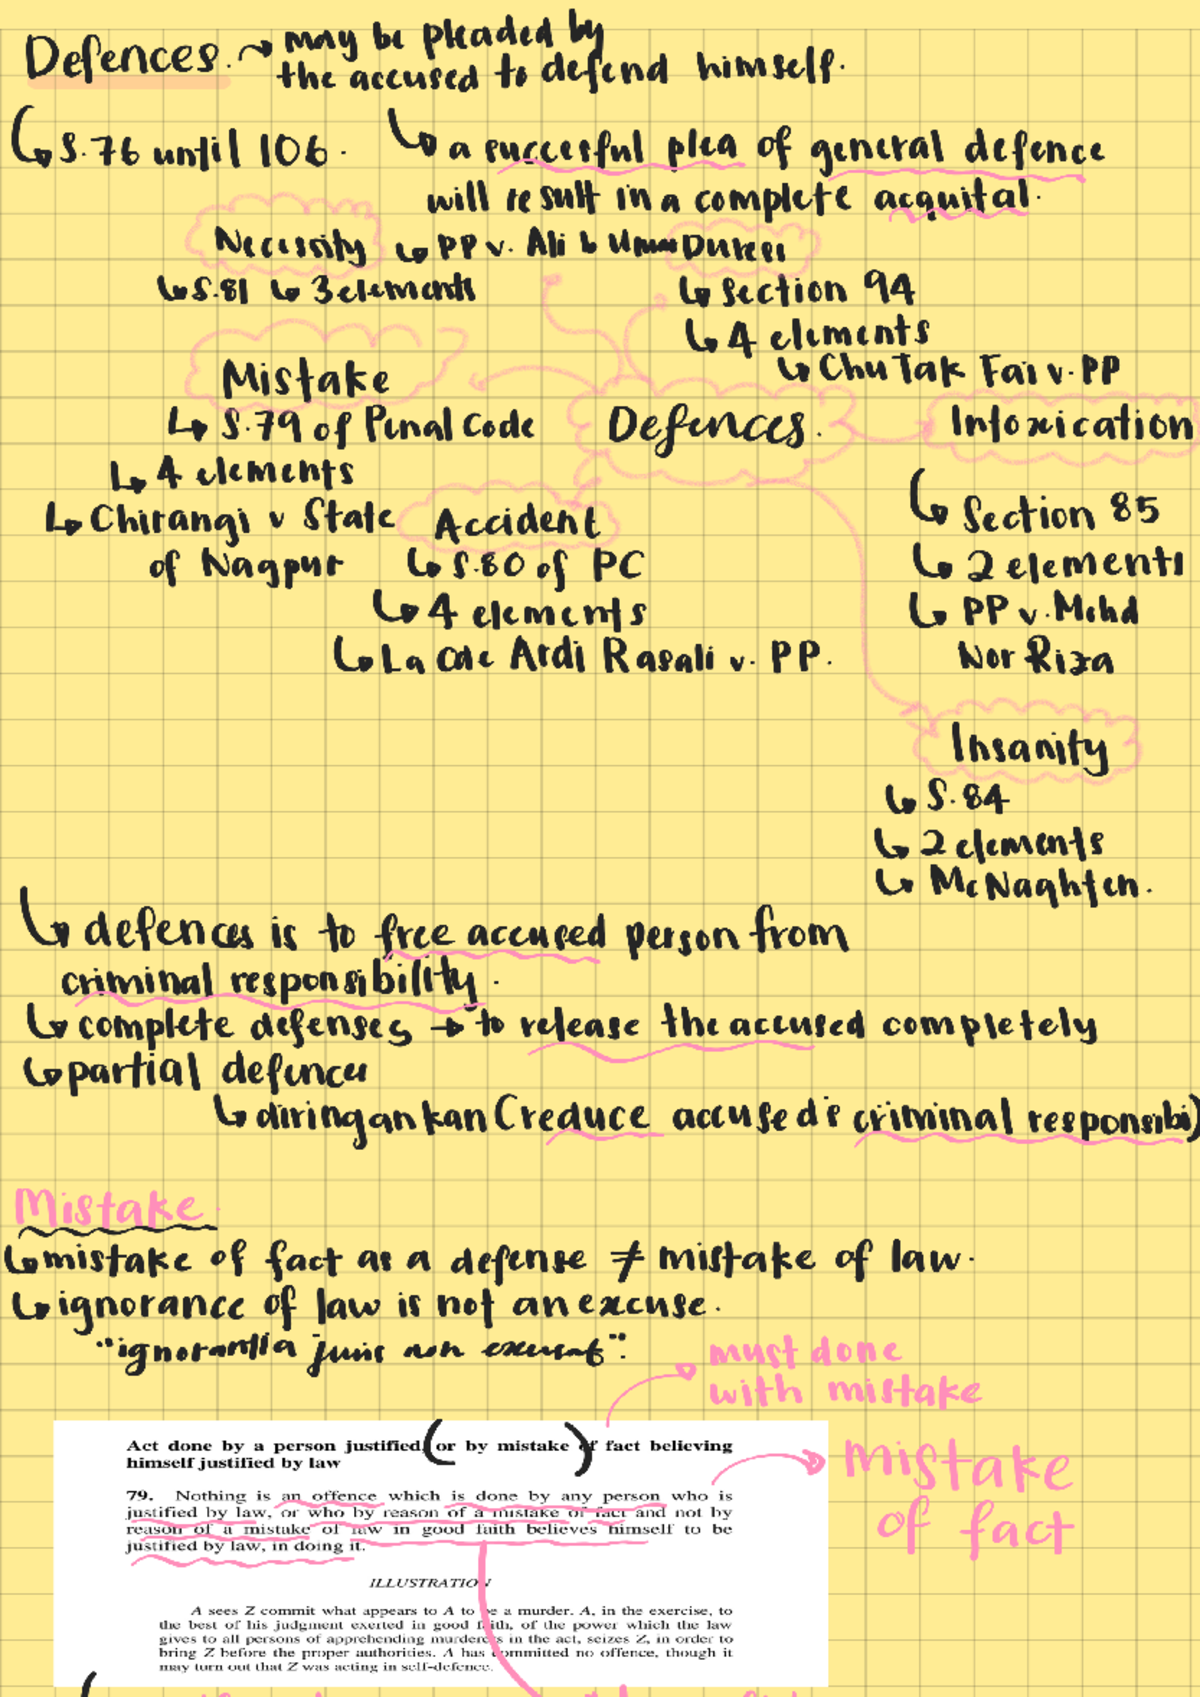 Defences. → may be pleaded by
the accused to defend himself.
↳ S.76 until 106.
↳ a succesful plea of general defence
will result in a complete acquital.
Necessity ↳ PP v. Ali b Umar
↳ S.81 ↳ 3 elements
Duress
↳ Section 94
↳ 4 elements
↳ Chu Tak Fai v. PP
Mistake
↳ S.79 of Penal Code
↳ 4 elements
↳ Chirangi v State
of Nagpur
Defences.
Intoxication
↳ Section 85
↳ 2 elements
↳ PP v. Mohd
Nor Riza
Accident
↳ S.80 of PC
↳ 4 elements
↳ La Ode Ardi Rasali v. PP.
Insanity
↳ S.84
↳ 2 elements
↳ McNaghten.
↳ defences is to free accused person from
criminal responsibility.
↳ complete defenses → to release the accused completely
↳ partial defence
↳ diringankan (reduce accused's criminal responsibi)
Mistake.
↳ mistake of fact as a defense ≠ mistake of law.
↳ ignorance of law is not an excuse.
"ignorantia juris non excusat".
must done
with mistake
Act done by a person justified, (or by mistake) of fact believing
himself justified by law
mistake
of fact
79. Nothing is an offence which is done by any person who is
justified by law, or who by reason of a mistake of fact and not by
reason of a mistake of law in good faith believes himself to be
justified by law, in doing it.
ILLUSTRATION
A sees Z commit what appears to A to be a murder. A, in the exercise, to
the best of his judgment exerted in good faith, of the power which the law
gives to all persons of apprehending murderers in the act, seizes Z, in order to
bring Z before the proper authorities. A has committed no offence, though it
may turn out that Z was acting in self-defence.